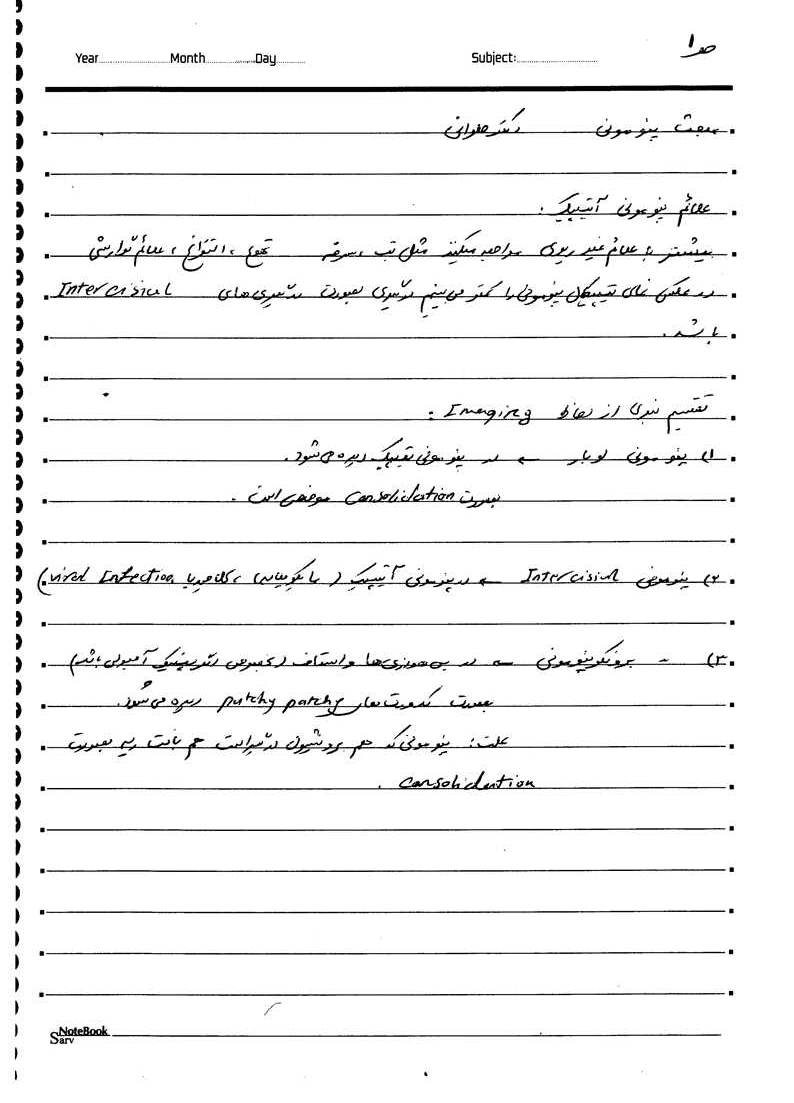 ص ۱
Year Month Day Subject:
مبحث پنومونی دکتر حلوانی
علائم پنومونی آتیپیک:
بیشتر با علائم غیر ریوی مراجعه میکنند مثل تب، سرفه تهوع، استفراغ، علائم گوارشی
در عکس نمای تیپیکال پنومونی را کمتر می‌بینیم درگیری بصورت درگیری‌های Intercisial
باشد.
تقسیم بندی از لحاظ Imaging:
۱) پنومونی لوبار ← در پنومونی تیپیک دیده می‌شود.
بصورت consolidation موضعی است.
۲) پنومونی Intercisial ← در پنومونی آتیپیک (مایکوپلاسما، کلامیدیا viral Infection)
۳) " برونکوپنومونی ← در بی هوازی‌ها و استاف (بخصوص اگر سپتیک آمبولی باشد)
بصورت کدورت‌های patchy patchy دیده می‌شود.
علت: پنومونی که هم برونشیول درگیر است هم بافت ریه بصورت
consolidation.
NoteBook
Sarv